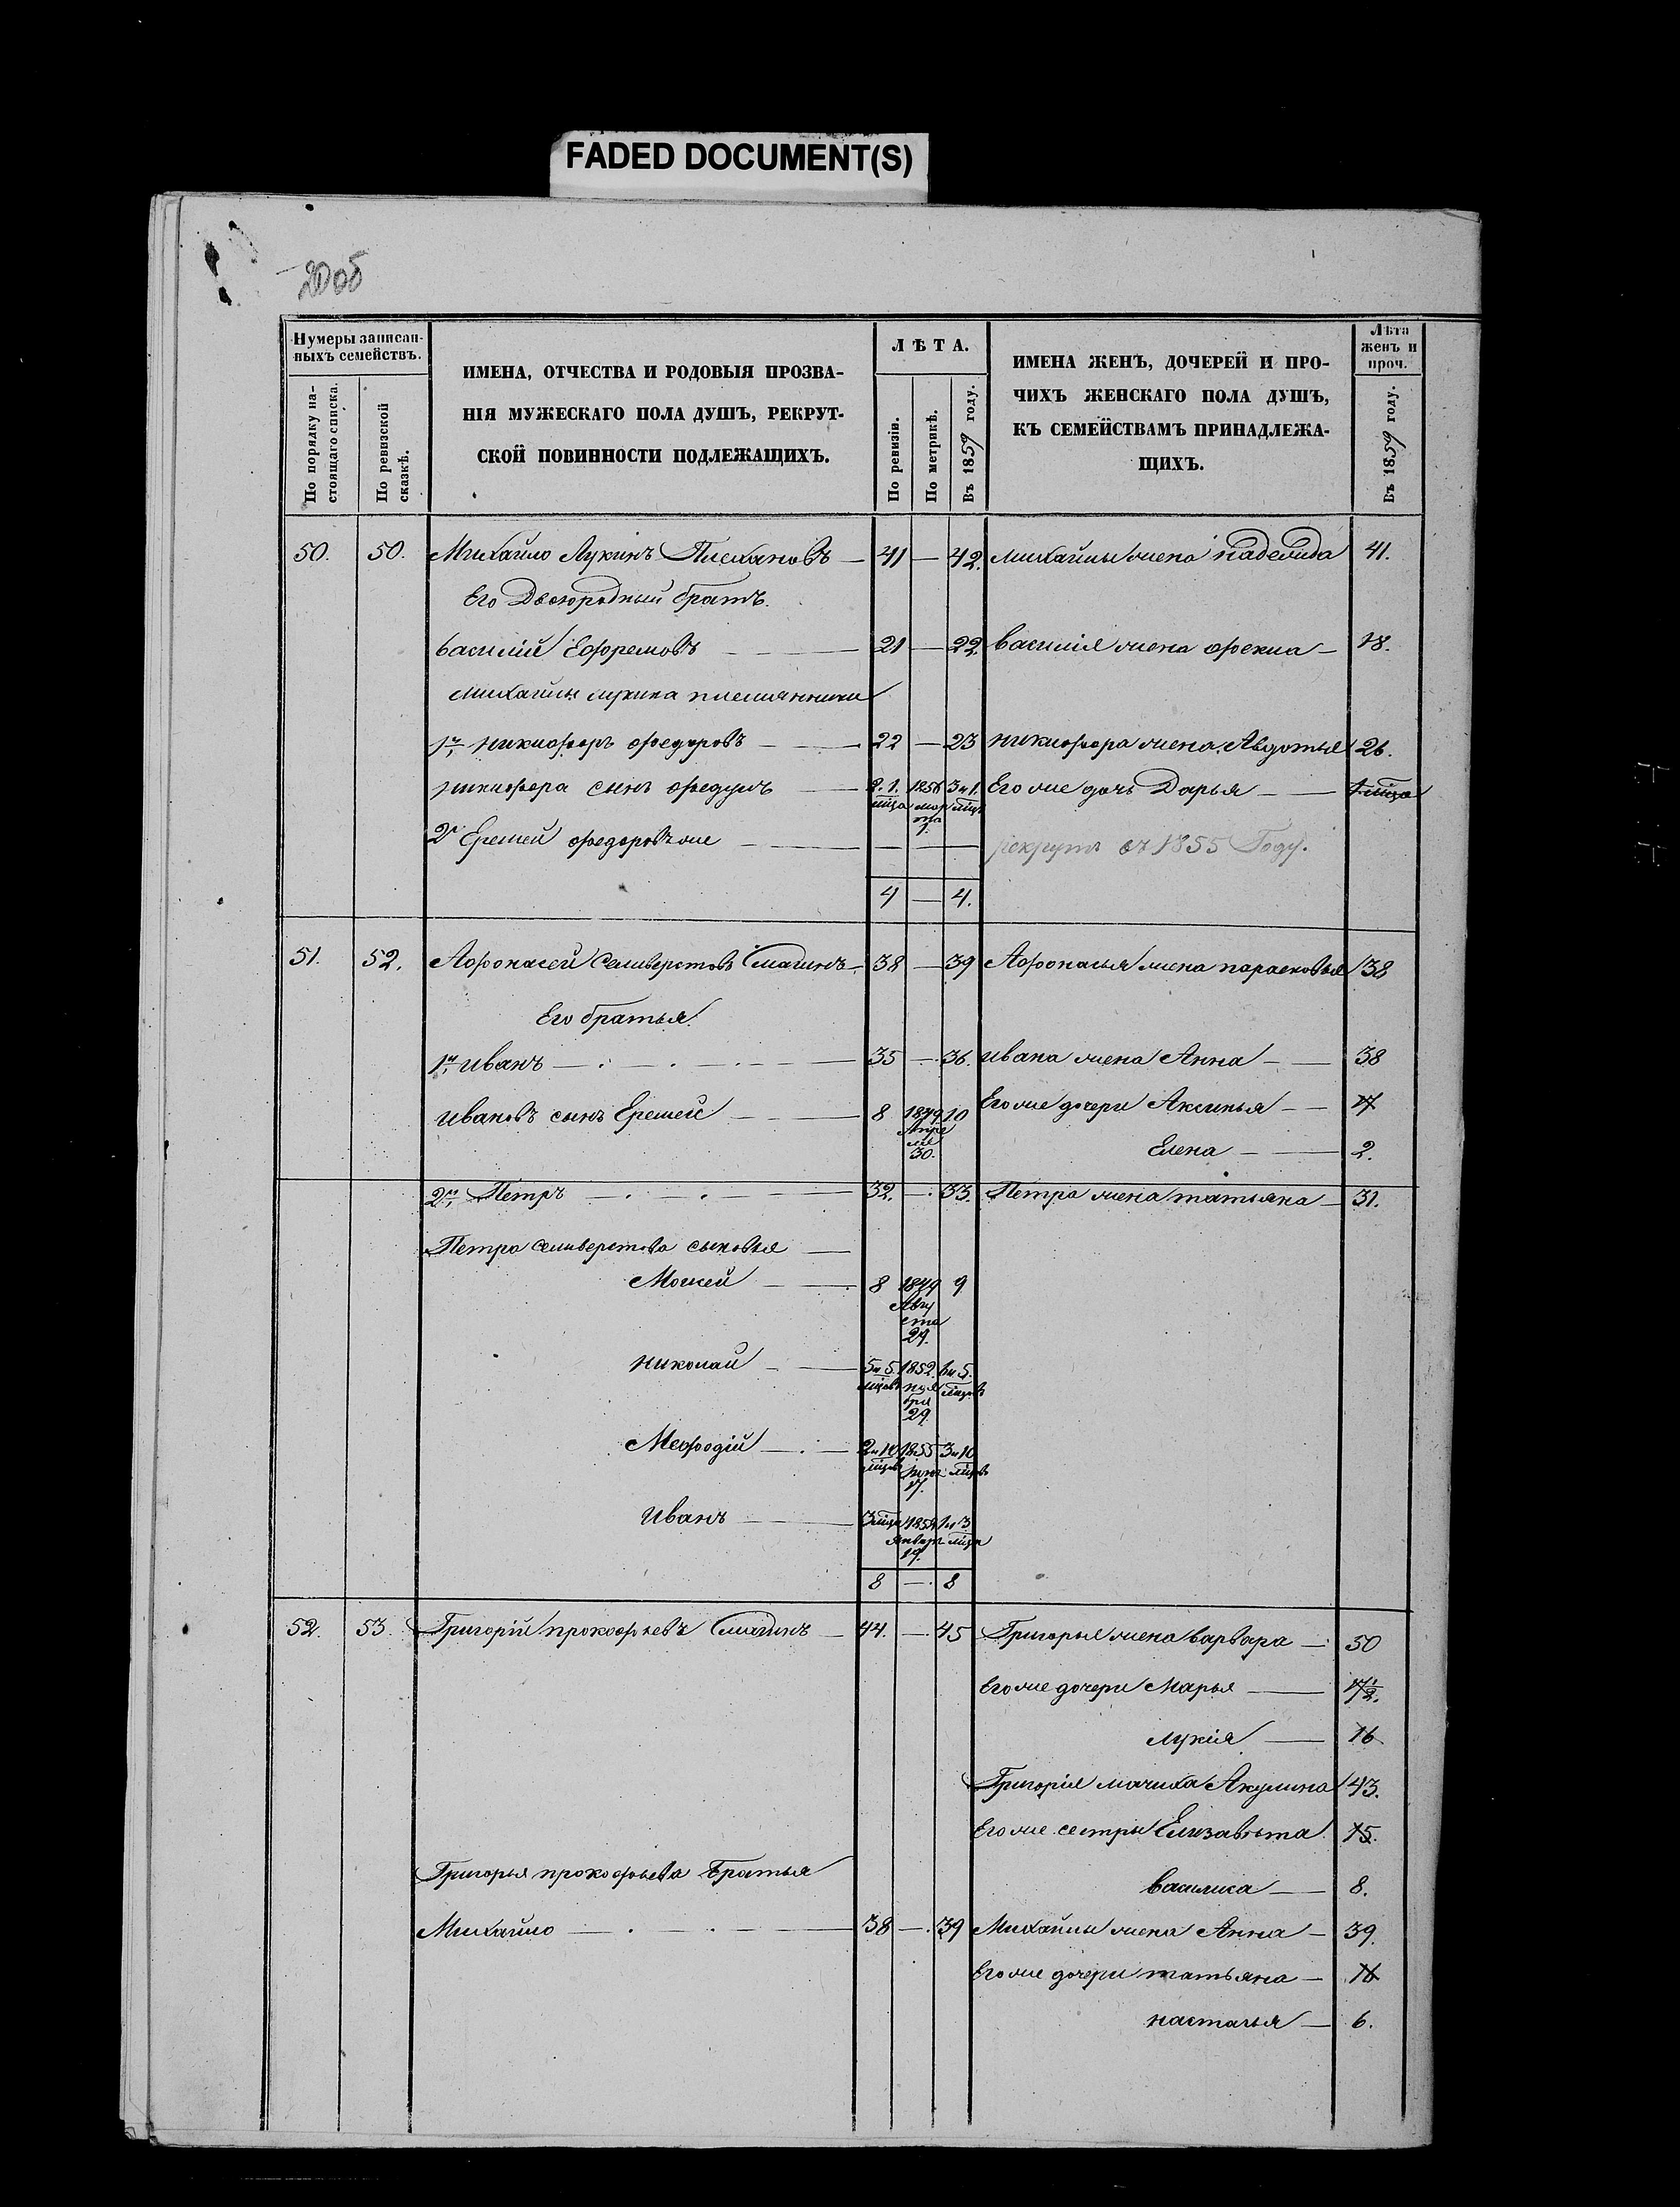 FADED DOCUMENT(S)
20об
Нумеры записан-
ныхъ семействъ.
По порядку на-
стоящаго списка.
По ревизской
сказкѣ.
ИМЕНА, ОТЧЕСТВА И РОДОВЫЯ ПРОЗВА-
НІЯ МУЖЕСКАГО ПОЛА ДУШЪ, РЕКРУТ-
СКОЙ ПОВИННОСТИ ПОДЛЕЖАЩИХЪ.
ЛѢТА.
По ревизіи.
По метрикѣ.
Въ 1859 году.
ИМЕНА ЖЕНЪ, ДОЧЕРЕЙ И ПРО-
ЧИХЪ ЖЕНСКАГО ПОЛА ДУШЪ,
КЪ СЕМЕЙСТВАМЪ ПРИНАДЛЕЖА-
ЩИХЪ.
Лѣта
женъ и
проч.
Въ 1859 году.
50. 50. Михайло Лукинъ Плехановъ — 41 — 42. михайлы жена надежда 41.
Его Двоюродный братъ.
василій Ефремовъ — 21 — 22. василія жена фекла — 18.
михайлы лукина племянники
1й никифоръ федоровъ — 22 — 23 никифора жена Авдотья 26.
никифора сынъ федулъ — 2.1. мца 1856 мар та 1. 3и1. мца Его же дочь Дарья — 1 мца
2й Еремей федоровъ же — — — — рекрутъ съ 1855 Году.
4 — 4.
51. 52. Афонасей Селиверстовъ Смагинъ — 38 — 39 Афонасья жена парасковья 38
Его братья.
1й иванъ — 35 — 36. ивана жена Анна — 38
ивановъ сынъ Еремей — 8 1849 Апре ля 30. 10 Его же дочери Аксинья — 17
Елена — 2.
2й Петръ — 32. — 33. Петра жена татьяна — 31.
Петра селиверстова сыновья —
Мосей — 8 1849 Авгу ста 29. 9
николай — 5и5. мцовъ 1852. ноя бря 29. 6и5. мцовъ
Мефодій — 2и10 мцовъ 1855 іюня 17. 3и10 мцовъ
иванъ — 3 мца 1858 январ 19. 1и3 мца
8 — 8
52. 53. Григорій прокофьевъ Смагинъ — 44. — 45 Григорья жена варвара — 50
Его же дочери Марья — 17 1/2.
лукія — 16
Григорія мачиха Акулина 43.
Его же сестры Елизавѣта 15.
Григорья прокофьева Братья
василиса — 8.
Михайло — 38 — 39 Михайлы жена Анна — 39.
Его же дочери татьяна — 16
настасья — 6.